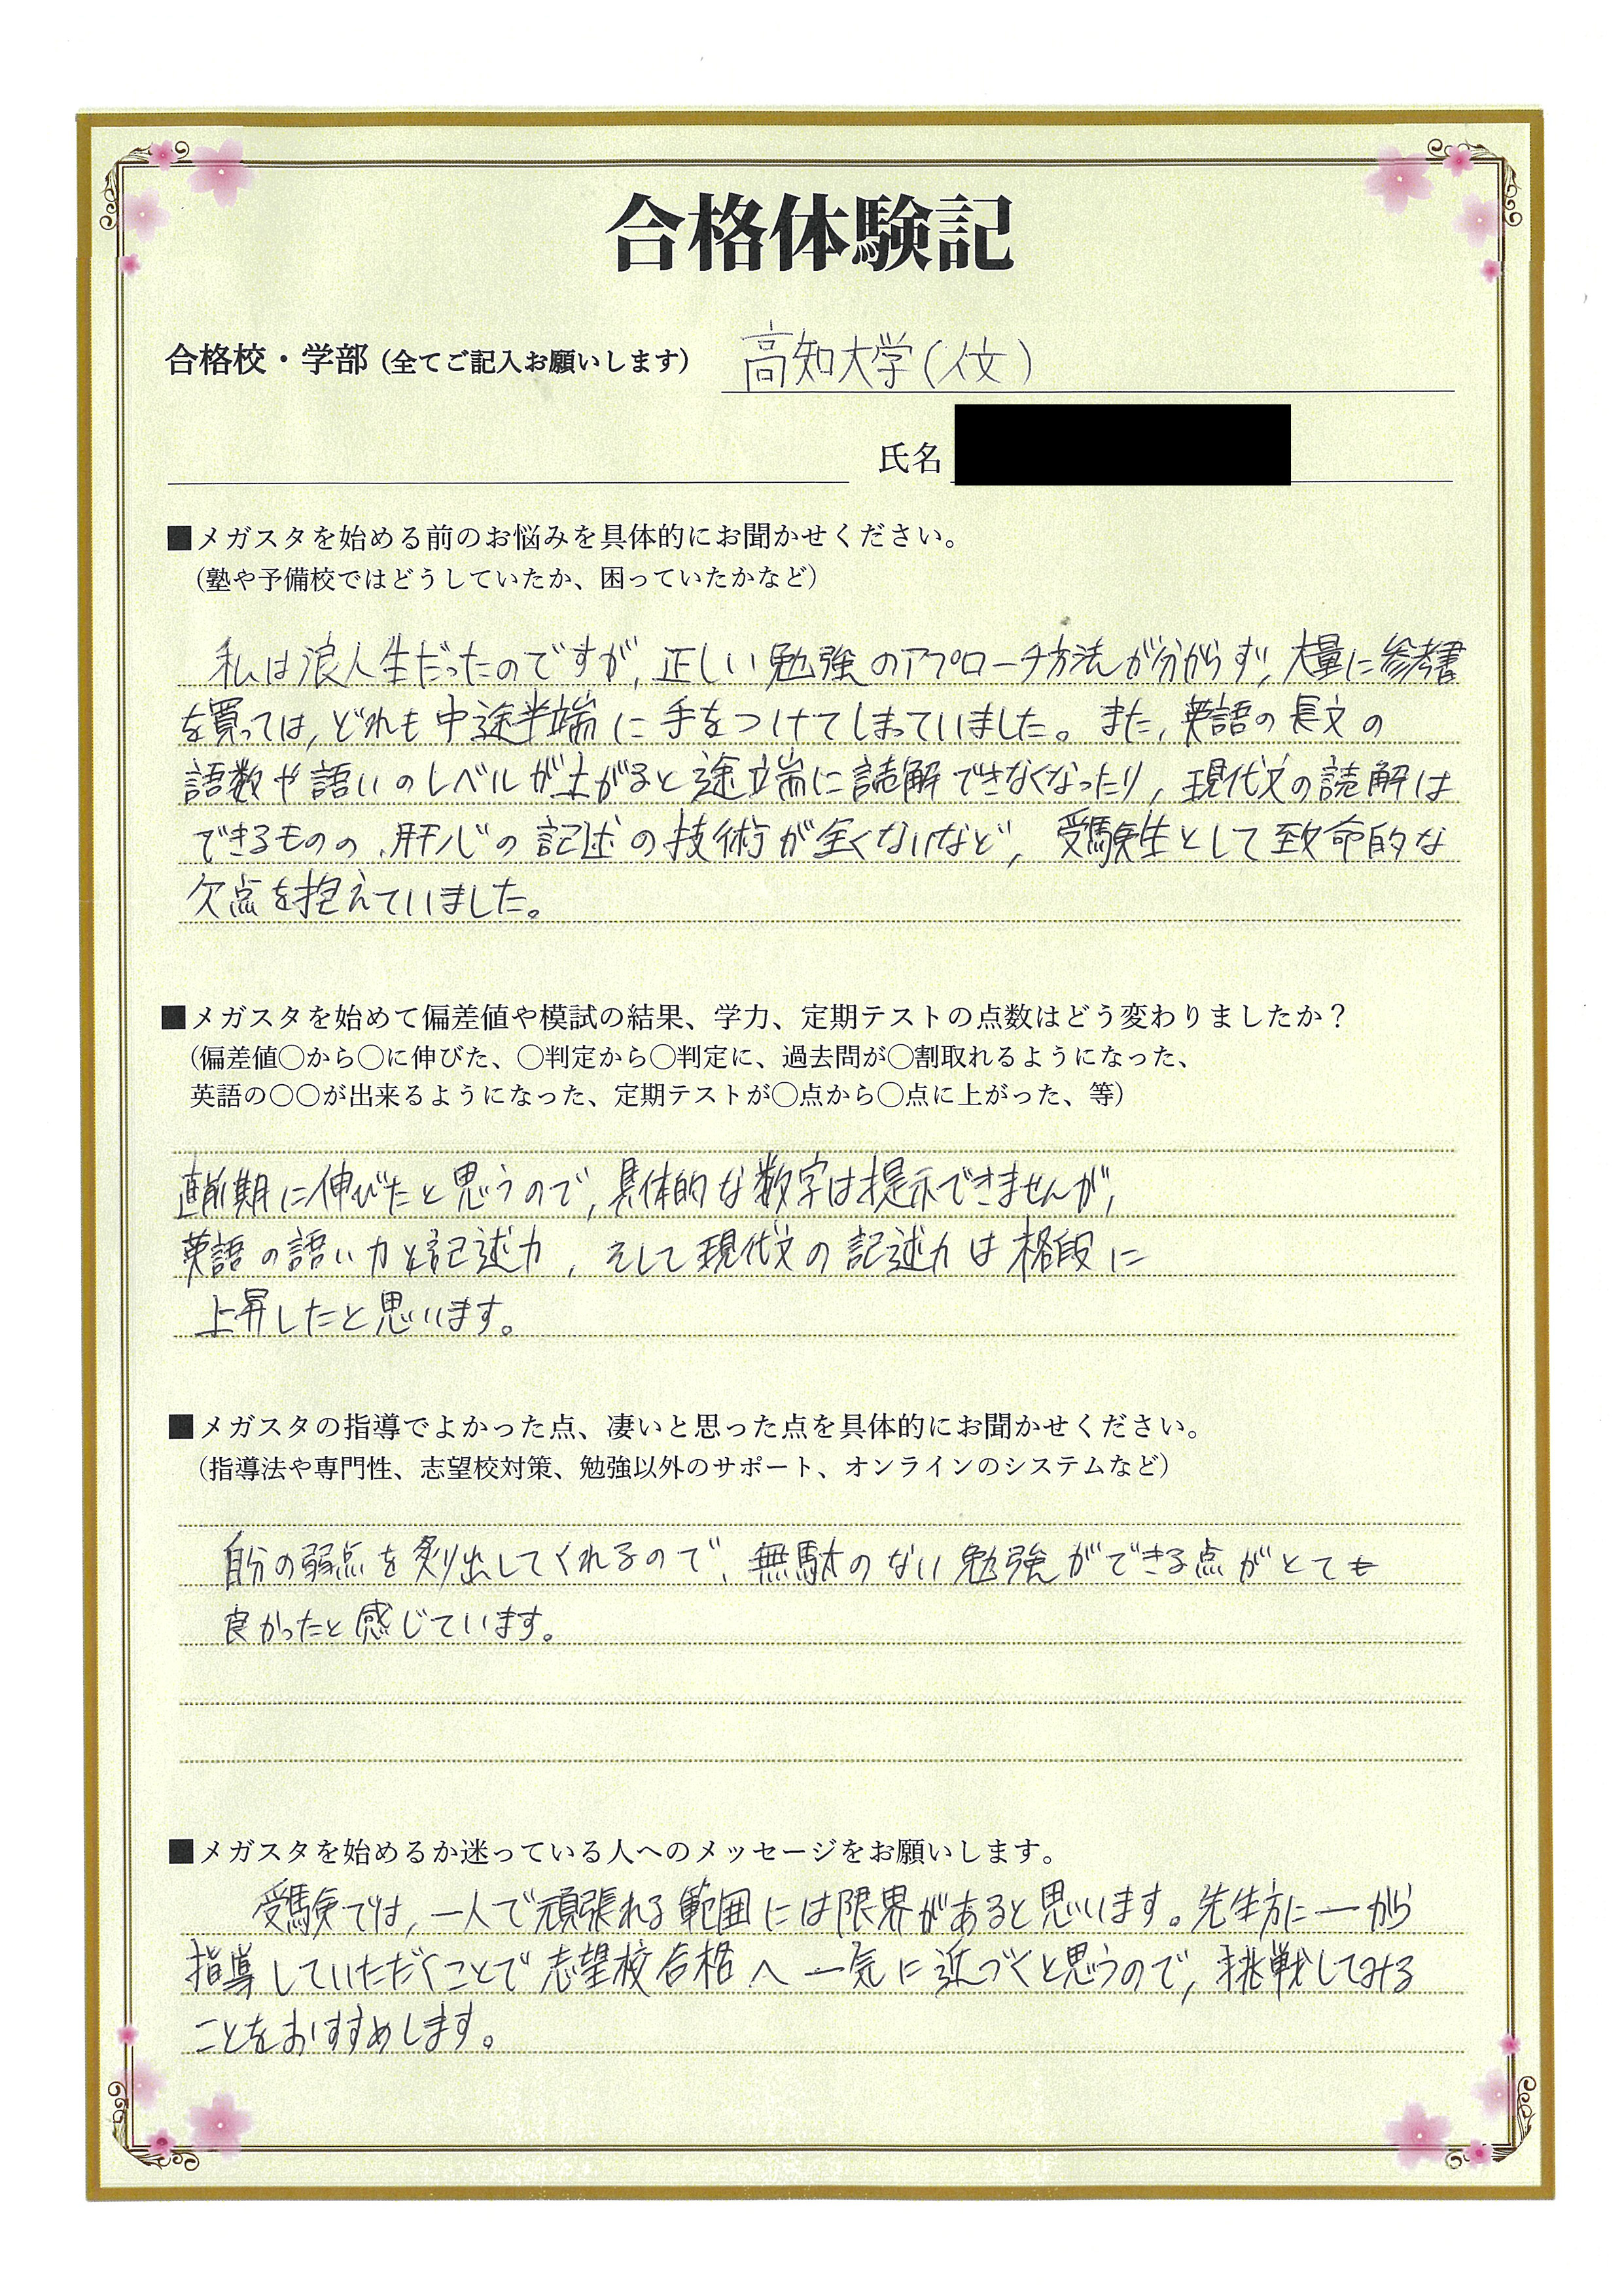 合格体験記
合格校・学部（全てご記入お願いします） 高知大学(人文)
氏名
■メガスタを始める前のお悩みを具体的にお聞かせください。
（塾や予備校ではどうしていたか、困っていたかなど）
私は浪人生だったのですが, 正しい勉強のアプローチ方法が分からず, 大量に参考書
を買っては, どれも中途半端に手をつけてしまっていました。また, 英語の長文の
語数や語いのレベルが上がると途立端に読解できなくなったり, 現代文の読解は
できるものの, 肝心の記述の技術が全くないなど, 受験生として致命的な
欠点を抱えていました。
■メガスタを始めて偏差値や模試の結果、学力、定期テストの点数はどう変わりましたか？
（偏差値〇から〇に伸びた、〇判定から〇判定に、過去問が〇割取れるようになった、
英語の〇〇が出来るようになった、定期テストが〇点から〇点に上がった、等）
直前期に伸びたと思うので, 具体的な数字は提示できませんが,
英語の語い力と記述力, そして現代文の記述力は格段に
上昇したと思います。
■メガスタの指導でよかった点、凄いと思った点を具体的にお聞かせください。
（指導法や専門性、志望校対策、勉強以外のサポート、オンラインのシステムなど）
自分の弱点を炙り出してくれるので, 無駄のない勉強ができる点がとても
良かったと感じています。
■メガスタを始めるか迷っている人へのメッセージをお願いします。
受験では, 一人で頑張れる範囲には限界があると思います。先生方に一から
指導していただくことで志望校合格へ一気に近づくと思うので, 挑戦してみる
ことをおすすめします。